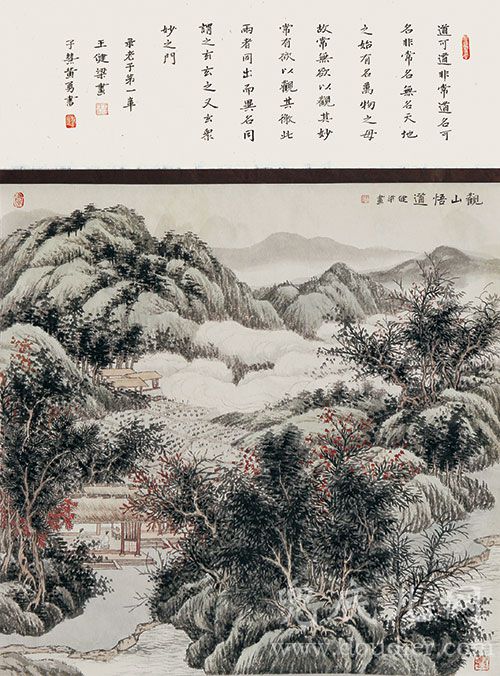 道可道非常道名可
名非常名無名天地
之始有名萬物之母
故常無欲以觀其妙
常有欲以觀其徼此
兩者同出而異名同
謂之玄玄之又玄衆
妙之門
录老子第一章
王健梁畫
觀山悟道 健梁畫